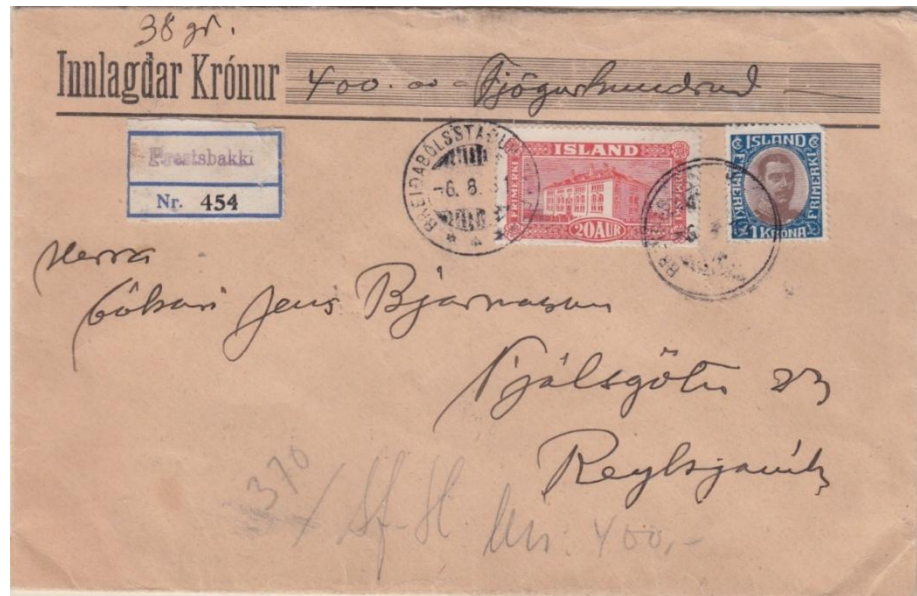 38 gr.
Innlagðar Krónur 400.00 Fjögurhundruð
Prestsbakki
Nr. 454
BREIDABOLSSTADUR
-6. 8. 3
ISLAND
FRIMERKI
20 AUR
ISLAND
FRIMERKI FRIMERKI
1 KRONA
Herra
bókari Jens Bjarnason
Njálsgötu
Reykjavík
370
400,-